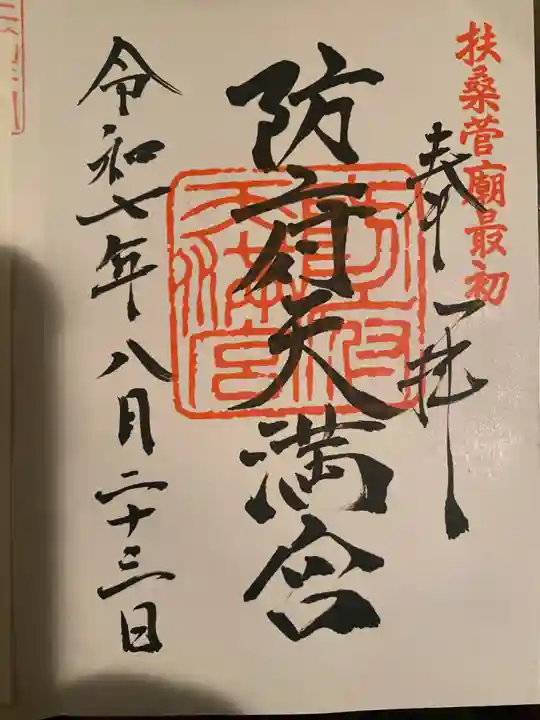 扶桑菅廟最初
奉拝
防府天満宮
令和七年八月二十三日